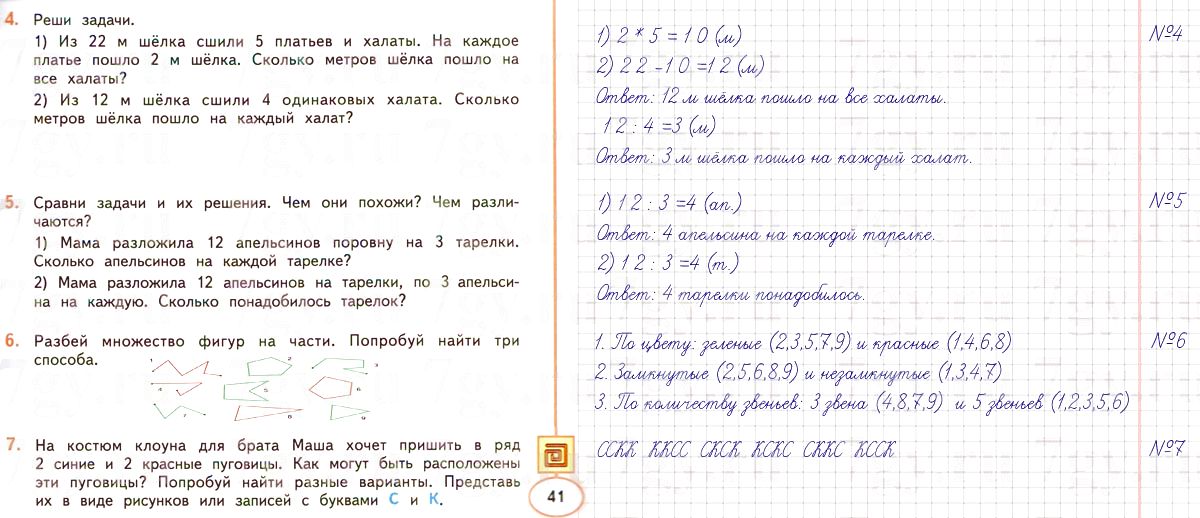 4. Реши задачи.
1) Из 22 м шёлка сшили 5 платьев и халаты. На каждое
платье пошло 2 м шёлка. Сколько метров шёлка пошло на
все халаты?
2) Из 12 м шёлка сшили 4 одинаковых халата. Сколько
метров шёлка пошло на каждый халат?
5. Сравни задачи и их решения. Чем они похожи? Чем разли-
чаются?
1) Мама разложила 12 апельсинов поровну на 3 тарелки.
Сколько апельсинов на каждой тарелке?
2) Мама разложила 12 апельсинов на тарелки, по 3 апельси-
на на каждую. Сколько понадобилось тарелок?
6. Разбей множество фигур на части. Попробуй найти три
способа.
1 2 3
5 6
8
7. На костюм клоуна для брата Маша хочет пришить в ряд
2 синие и 2 красные пуговицы. Как могут быть расположены
эти пуговицы? Попробуй найти разные варианты. Представь
их в виде рисунков или записей с буквами С и К.
41
№4
1) 2*5=10 (м)
2) 22-10=12 (м)
Ответ: 12 м шёлка пошло на все халаты.
12:4=3 (м)
Ответ: 3 м шёлка пошло на каждый халат.
№5
1) 12:3=4 (ап.)
Ответ: 4 апельсина на каждой тарелке.
2) 12:3=4 (т.)
Ответ: 4 тарелки понадобилось.
№6
1. По цвету: зеленые (2,3,5,7,9) и красные (1,4,6,8)
2. Замкнутые (2,5,6,8,9) и незамкнутые (1,3,4,7)
3. По количеству звеньев: 3 звена (4,8,7,9) и 5 звеньев (1,2,3,5,6)
№7
ССКК ККСС СКСК КСКС СККС КССК